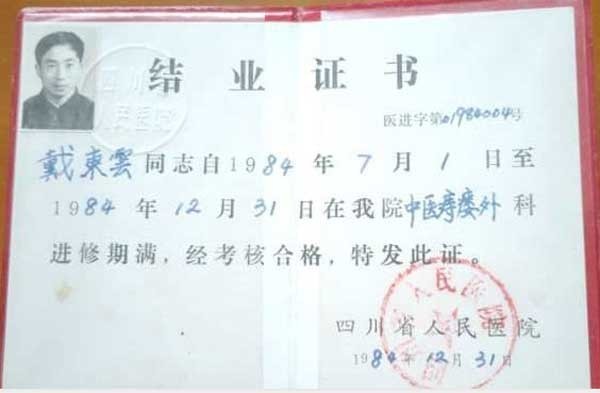 结业证书
医进字第01984004号
戴東雲同志自1984年7月1日至
1984年12月31日在我院中医痔瘘外科
进修期满,经考核合格,特发此证。
四川省人民医院
1984年12月31日
四川
人民医院
人民医院